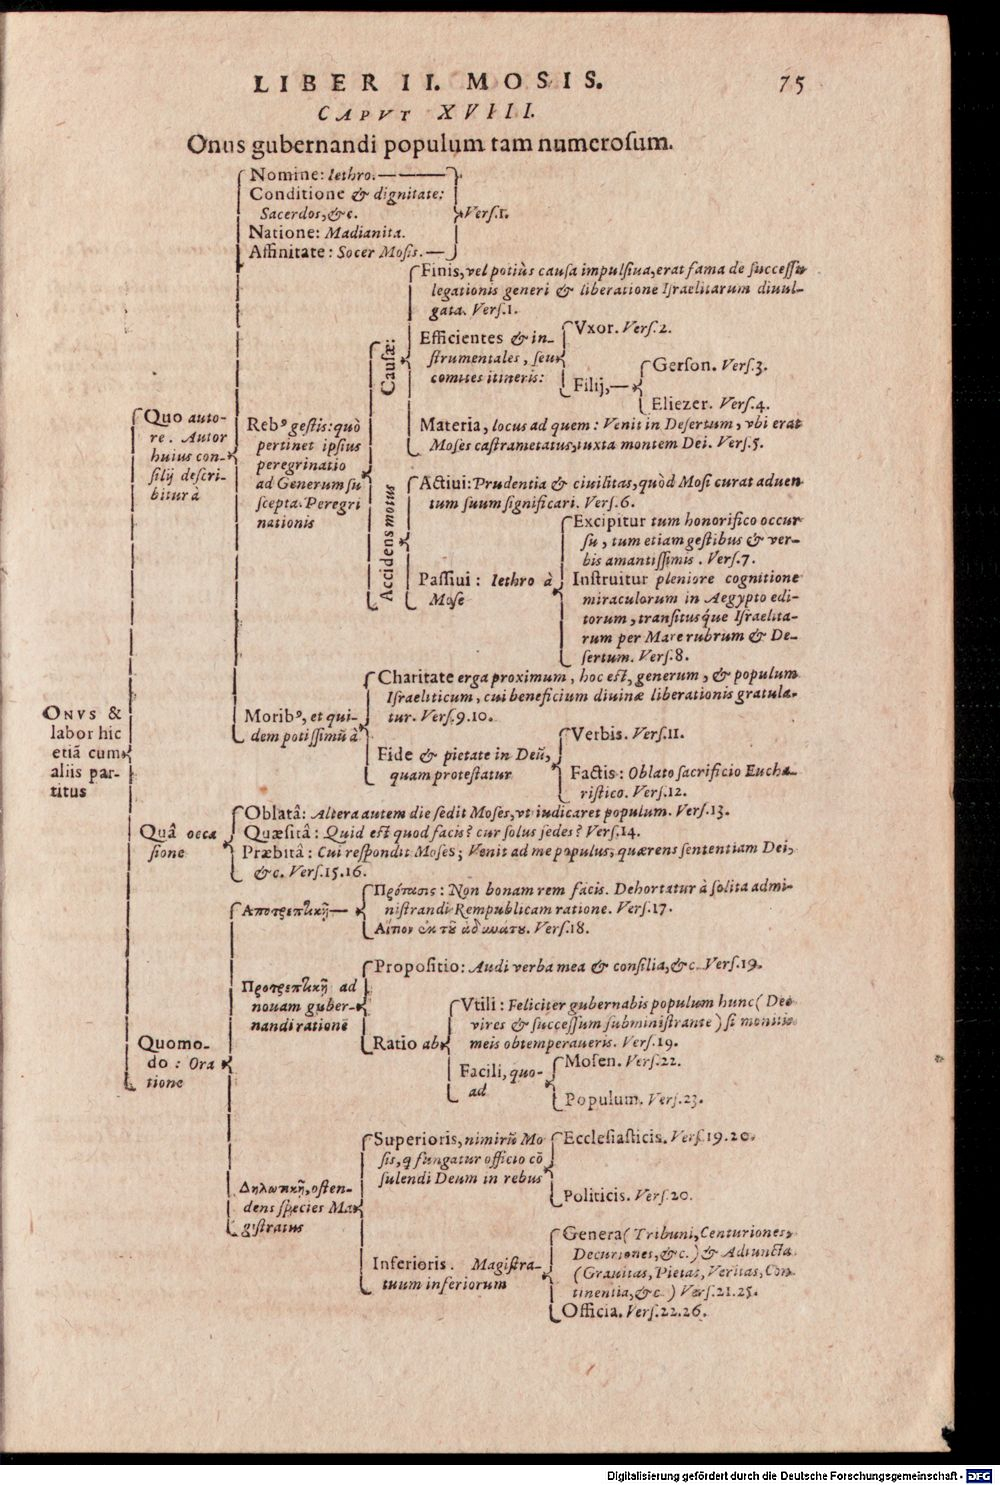 LIBER II. MOSIS. 75
CAPVT XVIII.
Onus gubernandi populum tam numerosum.
Nomine: Iethro.
Conditione & dignitate:
Sacerdos, &c.
Vers.1.
Natione: Madianita.
Affinitate: Socer Mosis.
Finis, vel potiùs causa impulsiua, erat fama de successu
legationis generi & liberatione Israelitarum diuul-
gata. Vers.1.
Causæ:
Efficientes & in-
strumentales, seu
comites itineris:
Vxor. Vers.2.
Filij,
Gerson. Vers.3.
Eliezer. Vers.4.
Quo auto-
re. Autor
huius con-
silij descri-
bitur à
Rebꝰ gestis: quò
pertinet ipsius
peregrinatio
ad Generum su
scepta. Peregri
nationis
Materia, locus ad quem: Venit in Desertum, vbi erat
Moses castrametatus, iuxta montem Dei. Vers.5.
Accidens motus
Actiui: Prudentia & ciuilitas, quòd Mosi curat aduen
tum suum significari. Vers.6.
Passiui: Iethro à
Mose
Excipitur tum honorifico occur
su, tum etiam gestibus & ver-
bis amantissimis. Vers.7.
Instruitur pleniore cognitione
miraculorum in Aegypto edi-
torum, transitusq́ue Israelita-
rum per Mare rubrum & De-
sertum. Vers.8.
Moribꝰ, et qui-
dem potissimũ à
Charitate erga proximum, hoc est, generum, & populum
Israeliticum, cui beneficium diuinæ liberationis gratula-
tur. Vers.9.10.
Fide & pietate in Deũ,
quam protestatur
Verbis. Vers.11.
Factis: Oblato sacrificio Eucha-
ristico. Vers.12.
ONVS &
labor hic
etiã cum
aliis par-
titus
Quâ occa
sione
Oblatâ: Altera autem die sedit Moses, vt iudicaret populum. Vers.13.
Quæsitâ: Quid est quod facis? cur solus sedes? Vers.14.
Præbitâ: Cui respondit Moses; Venit ad me populus, quærens sententiam Dei,
&c. Vers.15.16.
Quomo-
do: Ora
tione
Αποτρεπτικῇ
Πρότασις: Non bonam rem facis. Dehortatur à solita admi-
nistrandi Rempublicam ratione. Vers.17.
Αἴτιον ἐκ τοῦ ἀδυνάτου. Vers.18.
Προτρεπτικῇ ad
nouam guber-
nandi rationẽ
Propositio: Audi verba mea & consilia, &c. Vers.19.
Ratio ab
Vtili: Feliciter gubernabis populum hunc (Deo
vires & successum subministrante) si monitis
meis obtemperaueris. Vers.19.
Facili, quo-
ad
Mosen. Vers.22.
Populum. Vers.23.
Δηλωτικῇ, osten-
dens species Ma
gistratus
Superioris, nimirũ Mo
sis, q fungatur officio cõ
sulendi Deum in rebus
Ecclesiasticis. Vers.19.20.
Politicis. Vers.20.
Inferioris. Magistra-
tuum inferiorum
Genera (Tribuni, Centuriones,
Decuriones, &c.) & Adiuncta
(Grauitas, Pietas, Veritas, Con
tinentia, &c.) Vers.21.25.
Officia. Vers.22.26.
Digitalisierung gefördert durch die Deutsche Forschungsgemeinschaft - DFG